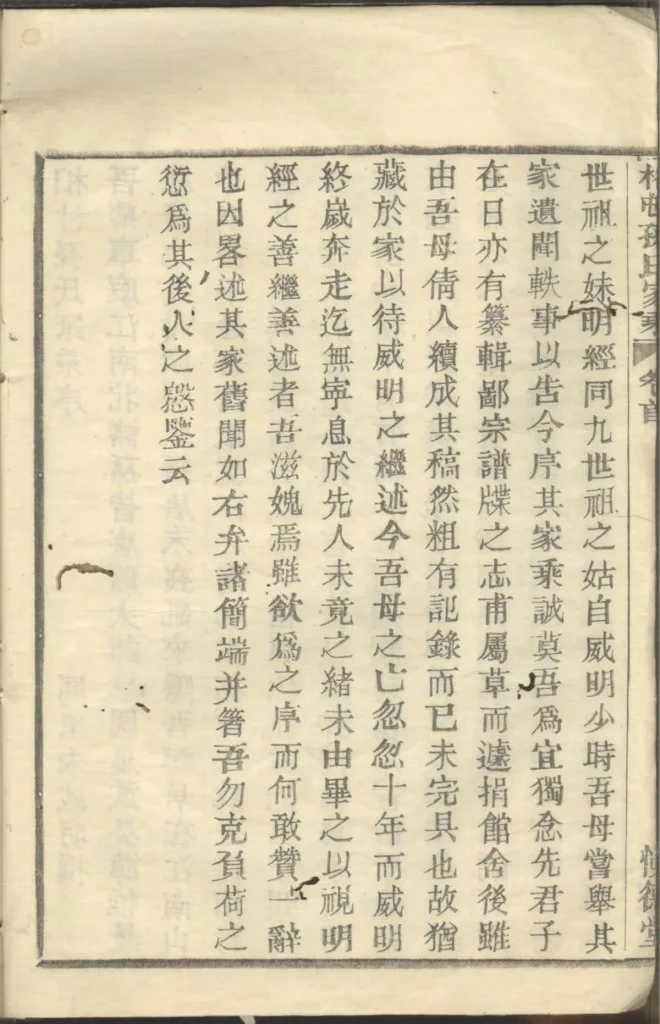 孫氏家乘
卷首
慎德堂
世祖之妹明經同九世祖之姑自威明少時吾母嘗舉其
家遺聞軼事以告今序其家乘誠莫吾爲宜獨念先君子
在日亦有纂輯鄙宗譜牒之志甫屬草而遽捐館舍後雖
由吾母倩人續成其稿然粗有記錄而已未完具也故猶
藏於家以待威明之繼述今吾母之亡忽忽十年而威明
終歲奔走迄無寧息於先人未竟之緒未由畢之以視明
經之善繼善述者吾滋媿焉雖欲爲之序而何敢贊一辭
也因畧述其家舊聞如右弁諸簡端并箸吾勿克負荷之
愆爲其後人之愍鑒云